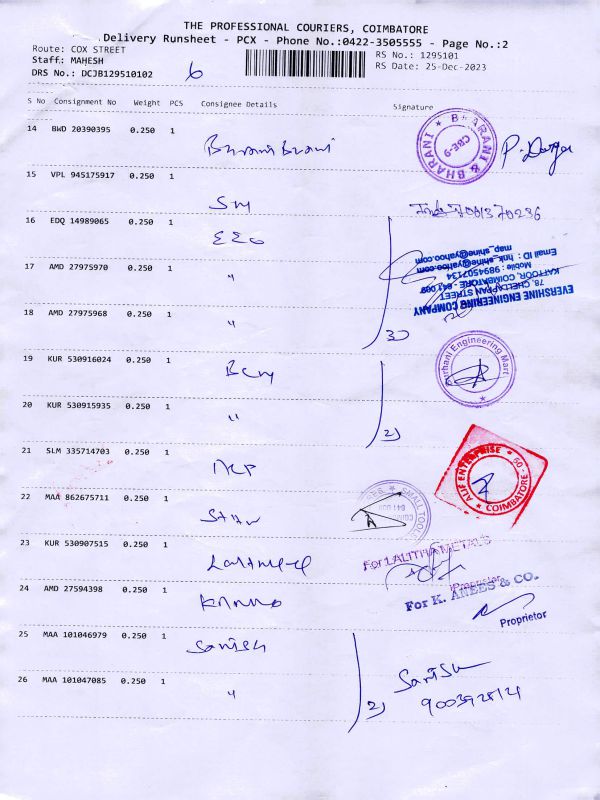 THE PROFESSIONAL COURIERS, COIMBATORE
Delivery Runsheet - PCX - Phone No.:0422-3505555 - Page No.:2
Route: COX STREET
RS No.: 1295101
Staff.: MAHESH
RS Date: 25-Dec-2023
DRS No.: DCJB129510102
6
S No Consignment No Weight PCS Consignee Details Signature
14 BWD 20390395 0.250 1
BHARANI & BHARANI
CBE-9
P. Durga
15 VPL 945175917 0.250 1
16 EDQ 14989065 0.250 1
EEC
EVERSHINE ENGINEERING COMPANY
78, CHELLAPPAN STREET
KATTOOR, COIMBATORE - 641 009
Mobile : 9894507134
Email ID : hnk_shine@yahoo.com
map_shine@yahoo.com
17 AMD 27975970 0.250 1
"
18 AMD 27975968 0.250 1
"
3)
19 KUR 530916024 0.250 1
Burhani Engineering Mart
20 KUR 530915935 0.250 1
"
2)
21 SLM 335714703 0.250 1
ALIF ENTERPRISE
COIMBATORE
22 MAA 862675711 0.250 1
SMALL TOOLS
23 KUR 530907515 0.250 1
For LALITHA METALS
Proprietor
24 AMD 27594398 0.250 1
For K. ANEES & CO.
Proprietor
25 MAA 101046979 0.250 1
Sanish
26 MAA 101047085 0.250 1
"
2)
Sanish